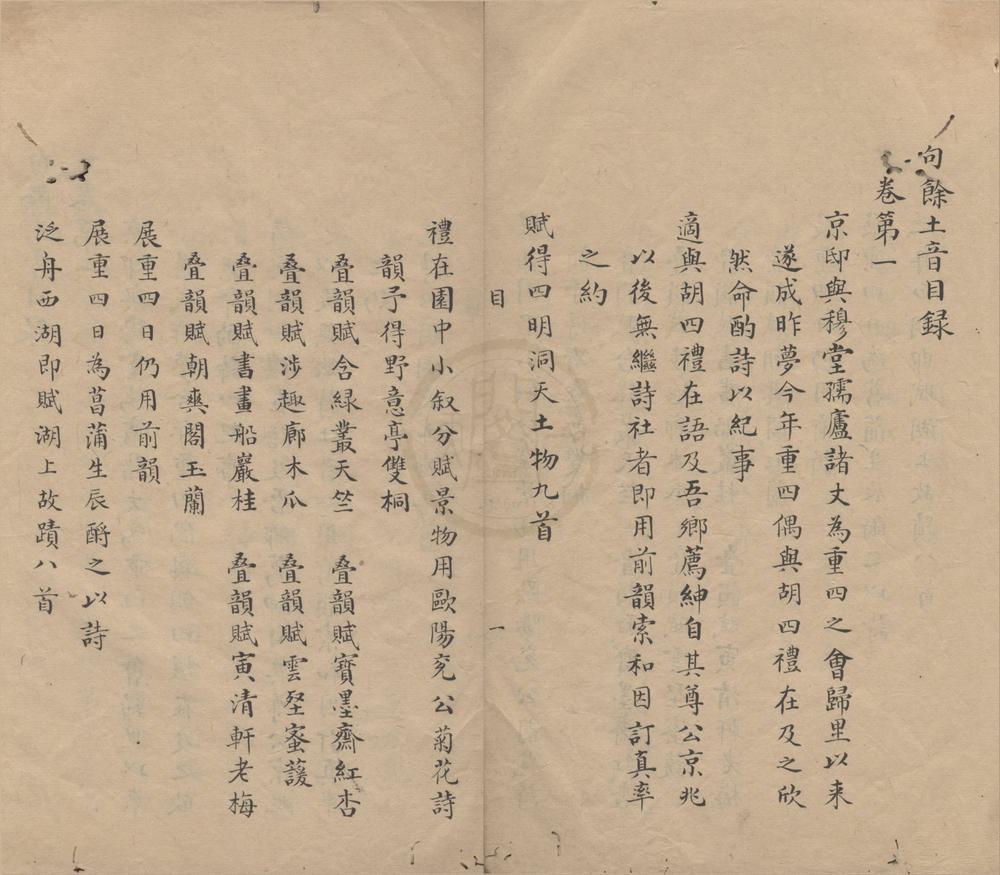 句餘土音目録
卷第一
京邸與穆堂孺廬諸丈為重四之會歸里以来
遂成昨夢今年重四偶與胡四禮在及之欣
然命酌詩以紀事
適與胡四禮在語及吾鄉薦紳自其尊公京兆
以後無繼詩社者即用前韻索和因訂真率
之約
賦得四明洞天土物九首
目 一
禮在園中小叙分賦景物用歐陽兖公菊花詩
韻予得野意亭雙桐
叠韻賦含緑叢天竺 叠韻賦寶墨齋紅杏
叠韻賦涉趣廊木瓜 叠韻賦雲壑蜜蘐
叠韻賦書畫船巖桂 叠韻賦寅清軒老梅
叠韻賦朝爽閣玉蘭
展重四日仍用前韻
展重四日為菖蒲生辰酹之以詩
泛舟西湖即賦湖上故蹟八首